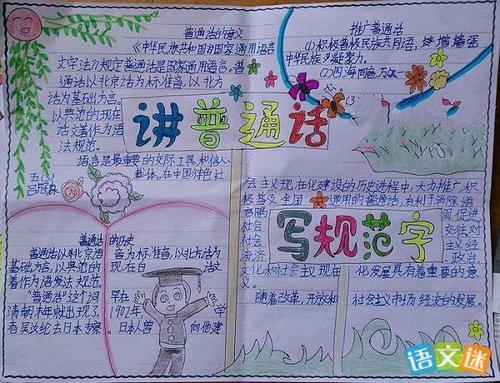 普通话的意义
《中华民族共和国国家通用语言
文字法》规定普通话是国家通用语言。普
通话以北京话为标准音,以北方
话为基础方言。
以典范的现在
语文著作为语
法规范。
推广普通话
①积极普极民族共同语,
增强
中华民族凝聚力。
讲普通话
语言是最重要的交际工具和信息
载体。在中国特色社
会主义现在化建设的历史进程中,大力推广积
极普及全国通用的普通话,有利于消除语
言隔
阂,促进
社会
交往,对
社会
主义经
济
政治
文化
社会主义现在
化发展具有着重要的意
义。
随着改革,开放和
社会主义市场经济的发展。
写规范字
五(3)
普通话的历史
普通话以北京语
音为标准音,以北方话为
基础方言,以典范的
现在白
话文
著作为语法规范。
“普通话”这个词
早在
清朝末年就出现了。
1902年,
学
者吴汝纶去日本考察
日本人曾
向他建
语文迷